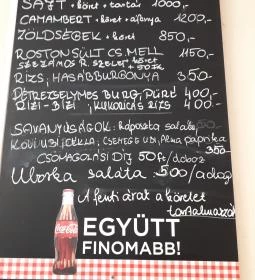 SAJT + köret + tartár 1000,-
CAMAMBERT + köret + áfonya 1200,-
ZÖLDSÉGEK + köret 850,-
ROSTON SÜLT CS. MELL 1150,-
SZEZÁMOS R. SZELET + köret
RIZS, HASÁBBURGONYA 350-
PETREZSELYMES BURG, PÜRÉ 400,-
RIZI-BIZI, KUKORICÁS RIZS 400,-
SAVANYÚSÁGOK: Káposzta saláta
KOVI UBI, CÉKLA, CSEMEGE UBI, Alma paprika
350-
CSOMAGOLÁSI DÍJ 50 Ft/doboz
Uborka saláta 500/adag
A fenti árat a köretet
tartalmazzák
Coca-Cola
EGYÜTT
FINOMABB!